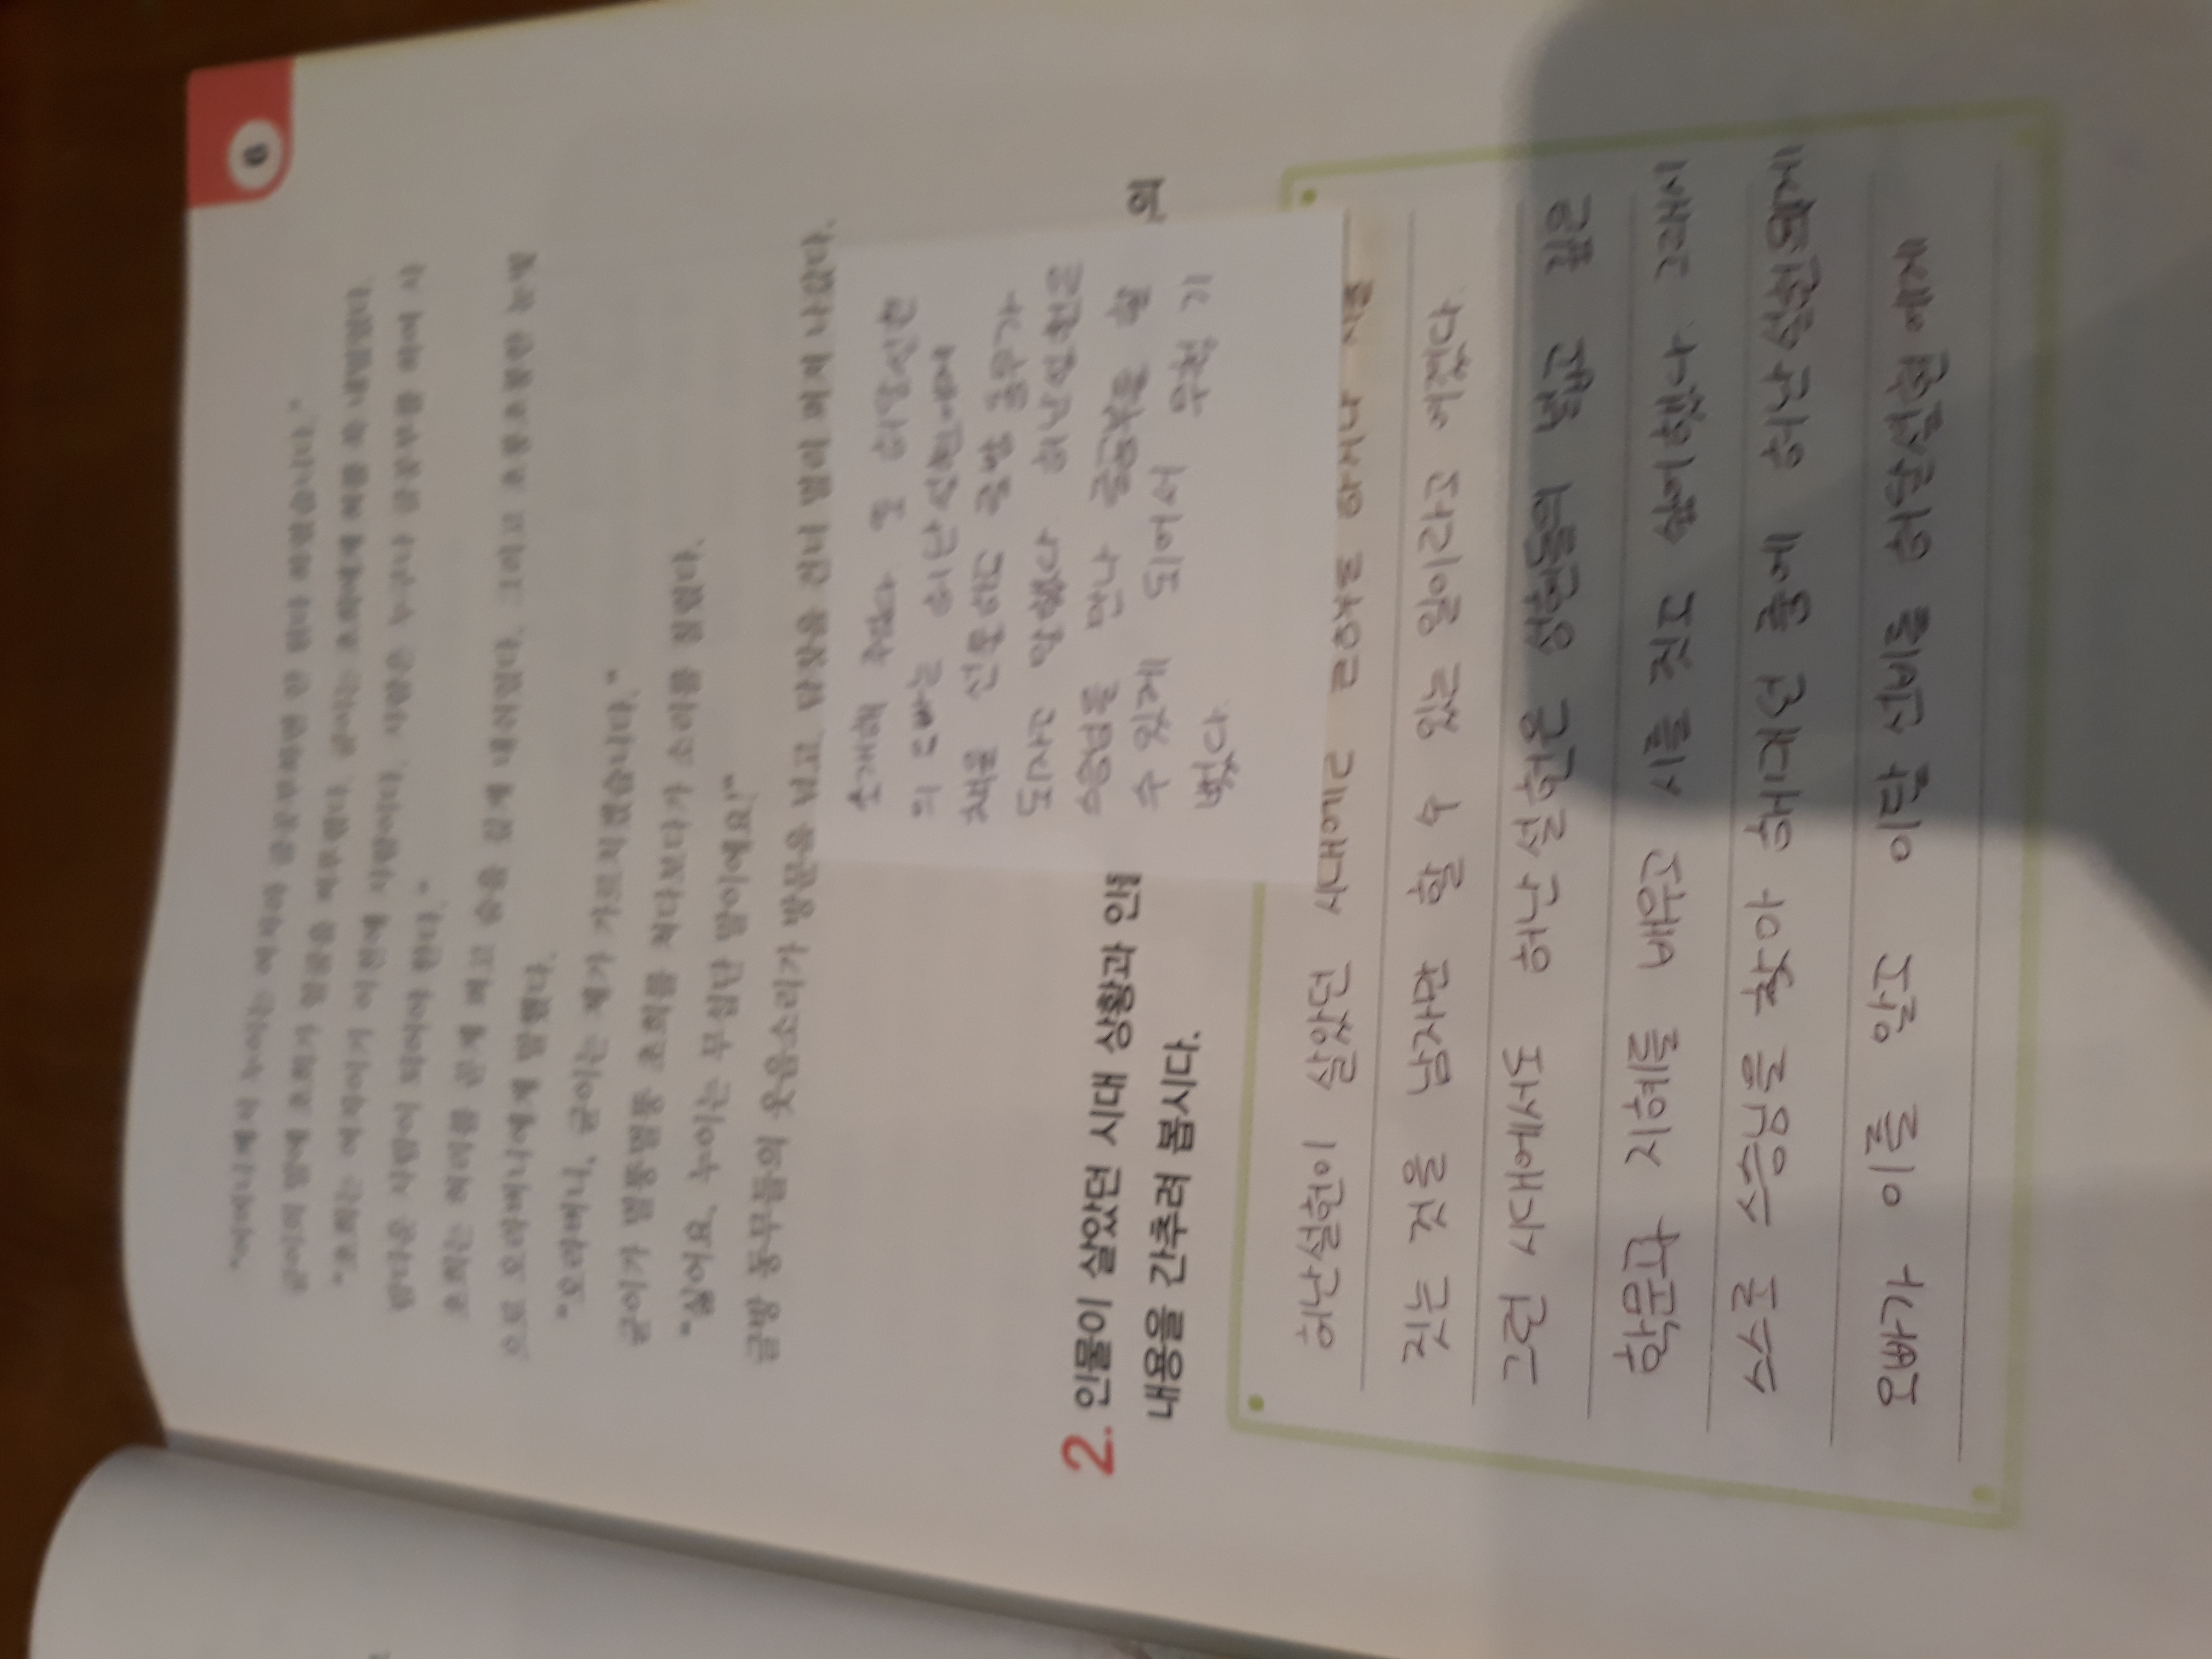 6
"어머니께서 누이는 여자라 글공부하면 안 된다 하셨습니다."
균이의 말에 초희가 얼굴을 찌푸렸다. 균이는 초희에게 혀를 쏙 내밀었다.
"초희는 여자이기 이전에 사람이다. 사람은 누구나 글공부를 하여 사
람다운 사람이 되어야 한다."
초희는 허리를 곧게 펴고 숨을 깊게 내쉬었다. 그리고 초롱초롱한 눈빛
으로 오라버니에게 말했다.
"오라버니, 균이는 제가 가르치겠습니다."
균이가 멀뚱멀뚱 초희를 쳐다보다가 소리를 질렀다.
"싫어요, 누이는 무섭단 말이에요!"
글방 동무들의 웃음소리가 방문을 넘고, 담장을 건너 멀리 퍼져 나갔다.
소개해 주었다 또 허난설헌
의 오빠는 허난설헌에게
책을 선물하고 글방 동무가
되자고 말했다. 허난설헌은
스승님을 만나 글공부를 할
수 있게 되어서 무척 기
뻤다.
2. 인물이 살았던 시대 상황과 인 의
내용을 간추려 봅시다.
허난설헌이 살았던 시대에는 글공부를 하거나 시를
짓는 것을 남자만 할 수 있는 일이라고 여겼다.
그런 시대에서도 허난설헌은 성현들의 넓고 깊은
학문과 지혜를 배우고 시를 짓고 싶어했다. 그래서
스스로 스승님을 찾아 헤매던 중에 허난설헌
오빠가 이를 알고 이달 선비를 허난설헌에게